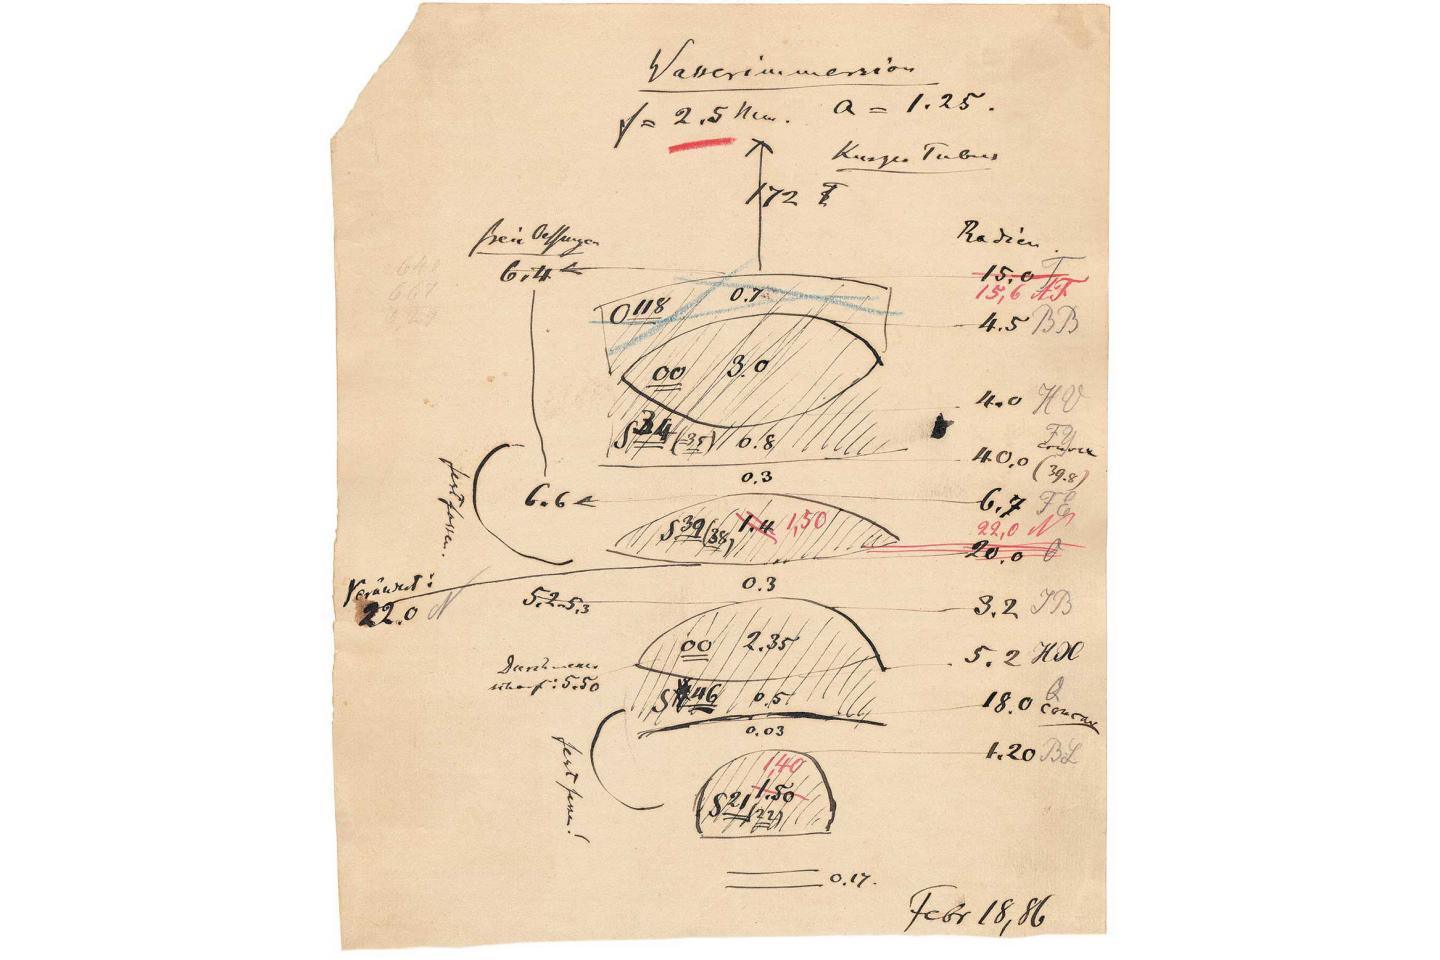 Wasserimmersion
f = 2.5 Mm. a = 1.25.
Kurzer Tubus
172
freie Oeffnungen
Radien.
6.4
15.0 T
15,6 AF
0.7
O 118
4.5 BB
00 3.0
4.0 HV
S 34 (35) 0.8
40.0 convex (39.8)
0.3
6.6
6.7 FE
S 39 (38) 1.4 1,50
22,0 N
20.0
fest fassen.
0.3
Verändert:
22.0 N
5.2-5,3
3.2 JB
00 2.35
5.2 HX
Durchmesser
scharf: 5.50
S 46 0.5
18.0 Q convex
0.03
1.20 BL
1,40
1.50
S 21 (22)
fest fassen!
0.17.
Febr 18,86